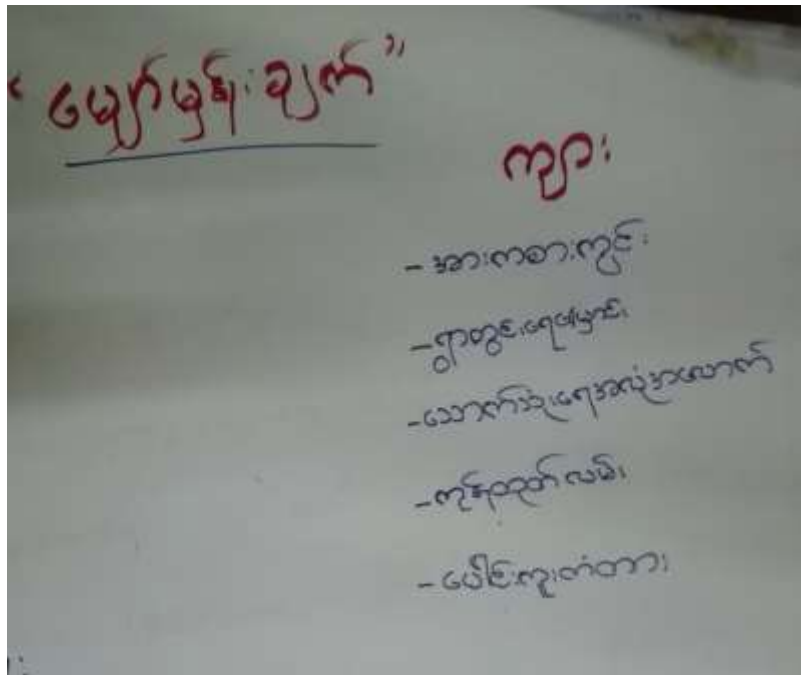 “မျှော်မှန်းချက်”
ကျား
- အားကစားကွင်း
- ရွာတွင်းရေမြောင်း
- သောက်သုံးရေအလုံအလောက်
- ကုန်ထုတ်လမ်း
- ပေါင်းကူးတံတား